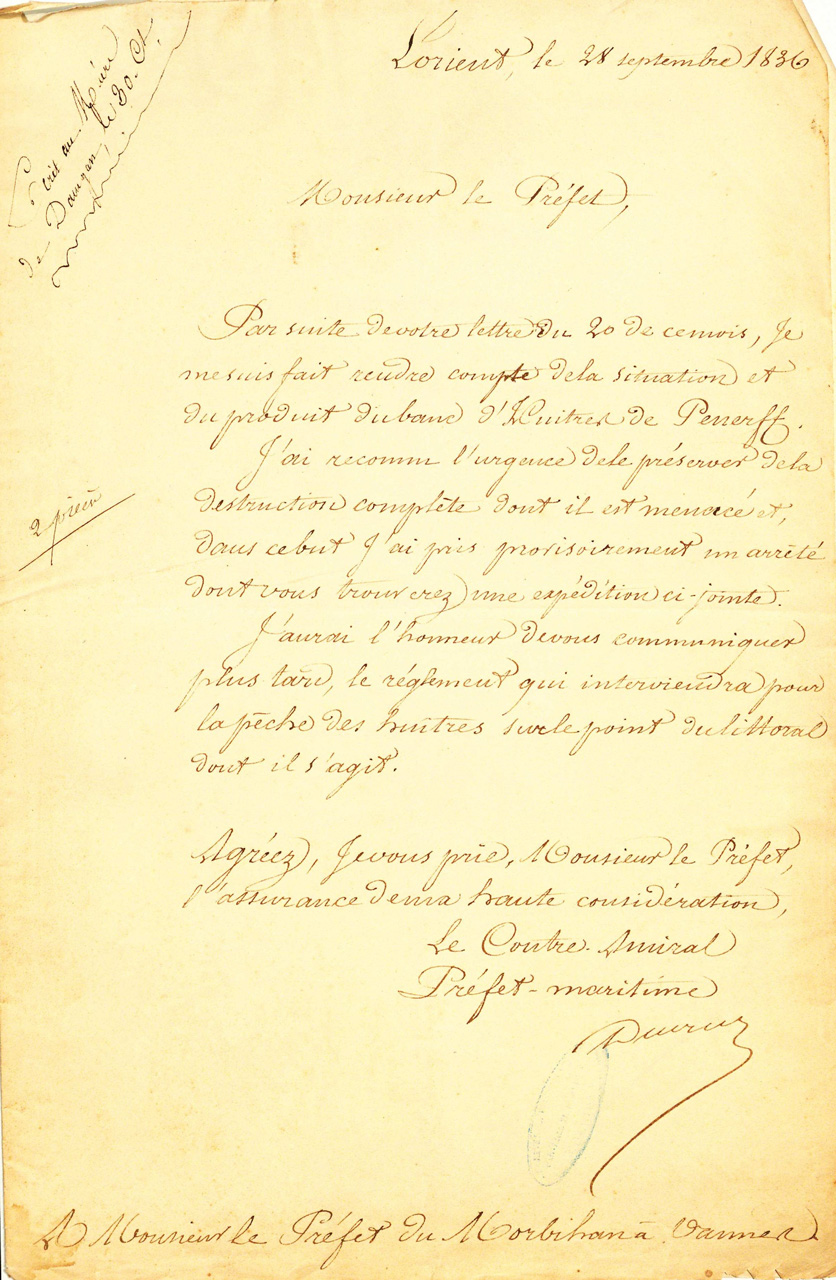 Lorient, le 28 septembre 1836
Ecrit au Maire
de Damgan, le 30. Ct.
Monsieur le Préfet,
Par suite de votre lettre du 20 de ce mois, Je
me suis fait rendre compte de la situation et
du produit du banc d'Huitres de Penerff.
J'ai reconnu l'urgence de le préserver de la
destruction complète dont il est menacé et,
dans ce but J'ai pris provisoirement un arrêté
dont vous trouverez une expédition ci-jointe.
2 pièces
J'aurai l'honneur de vous communiquer
plus tard, le réglement qui interviendra pour
la pêche des huîtres sur le point du littoral
dont il s'agit.
Agréez, Je vous prie, Monsieur le Préfet,
l'assurance de ma haute considération,
Le Contre-Amiral
Préfet-maritime
A Monsieur le Préfet du Morbihan à Vannes.